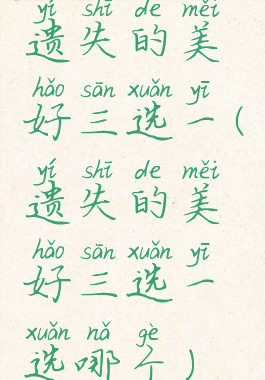 yí shī de měi
遗失的美
hǎo sān xuǎn yī
好三选一（
yí shī de měi
遗失的美
hǎo sān xuǎn yī
好三选一
xuǎn nǎ gè
选哪个）